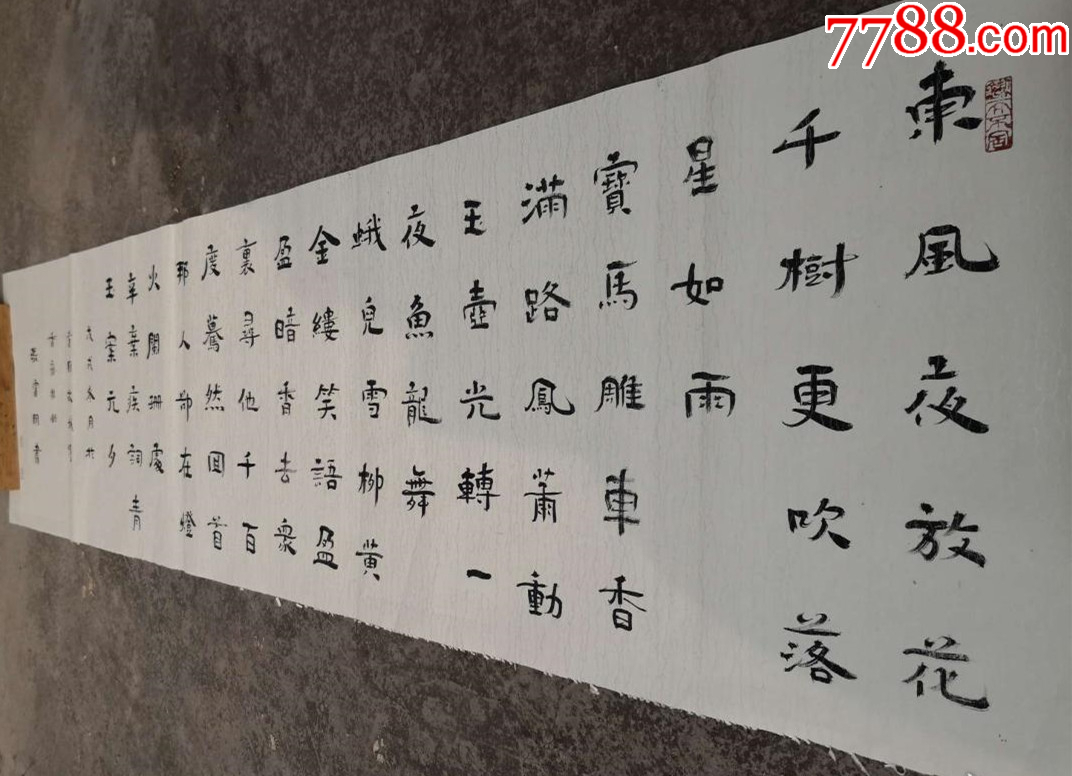 7788.com
東風夜放花
千樹更吹落
星如雨
寶馬雕車香
滿路鳳蕭動
玉壺光轉一
夜魚龍舞
蛾兒雪柳黄
金縷笑語盈
盈暗香去衆
裏尋他千百
度驀然回首
那人卻在燈
火闌珊處
辛棄疾詞青
玉案元夕
戊戌冬月於
書